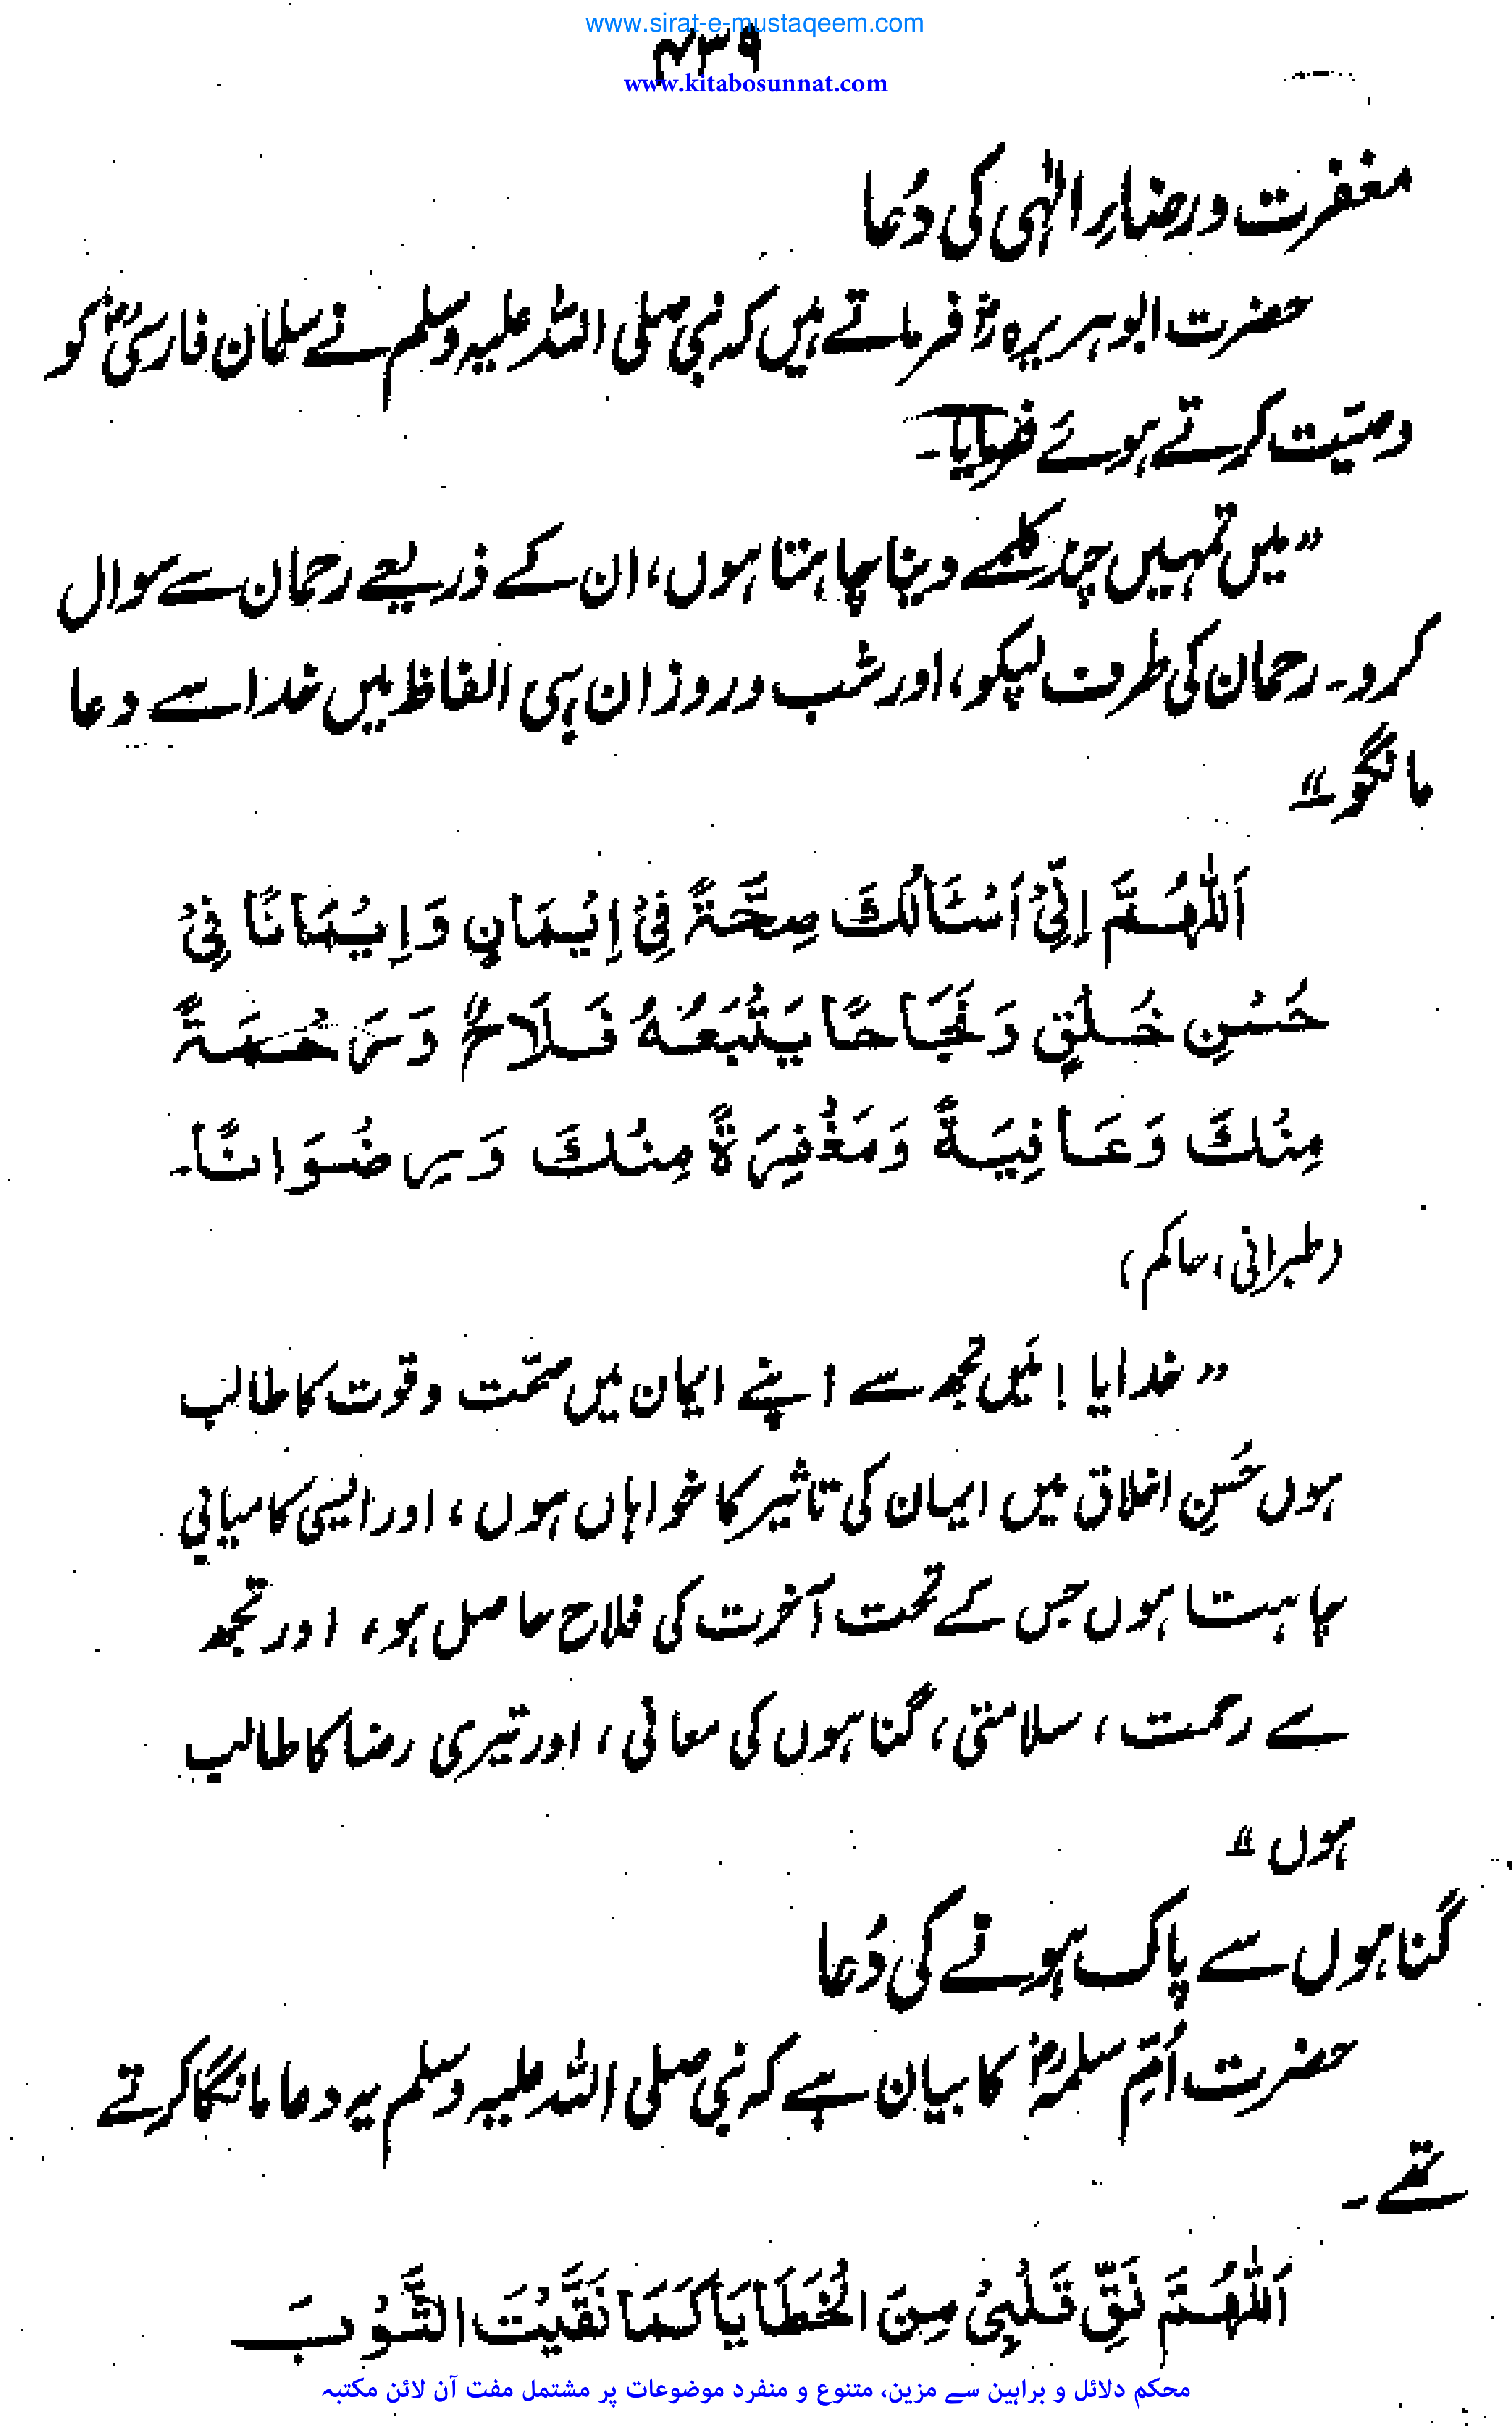 www.sirat-e-mustaqeem.com
۴۳۹
www.kitabosunnat.com
مغفرت و رضاءِ الٰہی کی دُعا
حضرت ابوہریرہ رضؓ فرماتے ہیں کہ نبی صلی اللہ علیہ وسلم نے سلمان فارسی رضؓ کو
وصیّت کرتے ہوئے فرمایا۔
”میں تمہیں چند کلمے دینا چاہتا ہوں، ان کے ذریعے رحمان سے سوال
کرو۔ رحمان کی طرف لپکو، اور شب و روز ان ہی الفاظ میں خدا سے دعا
مانگو۔“
اَللّٰهُمَّ اِنِّیْ اَسْئَالُكَ صِحَّةً فِیْ اِیْمَانٍ وَ اِیْمَانًا فِیْ
حُسْنِ خُلْقٍ وَ نَجَاحًا یَتْبَعُهٗ فَلَاحٌ وَ رَحْمَةً
مِنْكَ وَ عَافِیَةً وَ مَغْفِرَةً مِنْكَ وَ رِضْوَانًا۔
(طبرانی، حاکم)
”خدایا! مَیں تجھ سے اپنے ایمان میں صحّت و قوت کا طالب
ہوں حُسنِ اخلاق میں ایمان کی تاثیر کا خواہاں ہوں، اور ایسی کامیابی
چاہتا ہوں جس کے تحت آخرت کی فلاح حاصل ہو، اور تجھ
سے رحمت، سلامتی، گناہوں کی معافی، اور تیری رضا کا طالب
ہوں۔“
گناہوں سے پاک ہونے کی دُعا
حضرت اُمِّ سلمہ رضؓ کا بیان ہے کہ نبی صلی اللہ علیہ وسلم یہ دعا مانگا کرتے
تھے۔
اَللّٰهُمَّ نَقِّ قَلْبِیْ مِنَ الْخَطَایَا كَمَا نَقَّیْتَ الثَّوْبَ
محکم دلائل و براہین سے مزین، متنوع و منفرد موضوعات پر مشتمل مفت آن لائن مکتبہ